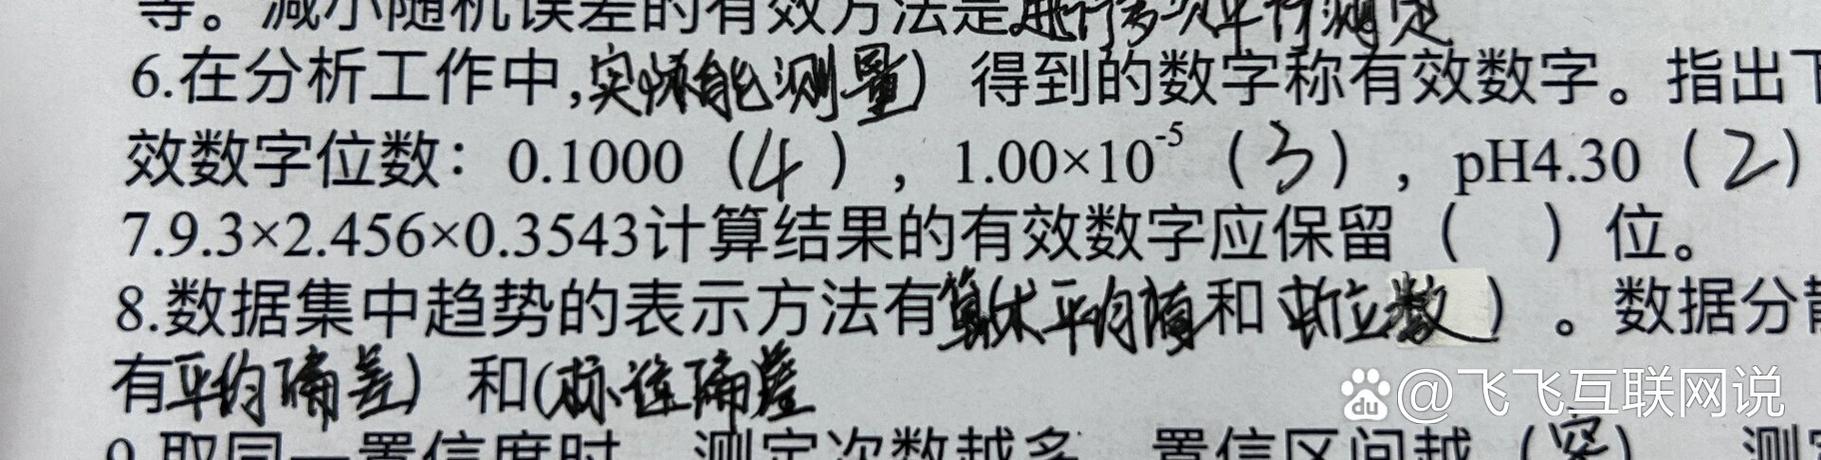 等。减小随机误差的有效方法是进行多次平行测定
6.在分析工作中,实际能测量) 得到的数字称有效数字。指出下
效数字位数：0.1000（4），1.00×10⁻⁵（3），pH4.30（2）
7.9.3×2.456×0.3543计算结果的有效数字应保留（ ）位。
8.数据集中趋势的表示方法有算术平均值和 中位数 ）。数据分散
有平均偏差）和(标准偏差
9.取同一置信度时，测定次数越多，置信区间越（窄），测定
@飞飞互联网说